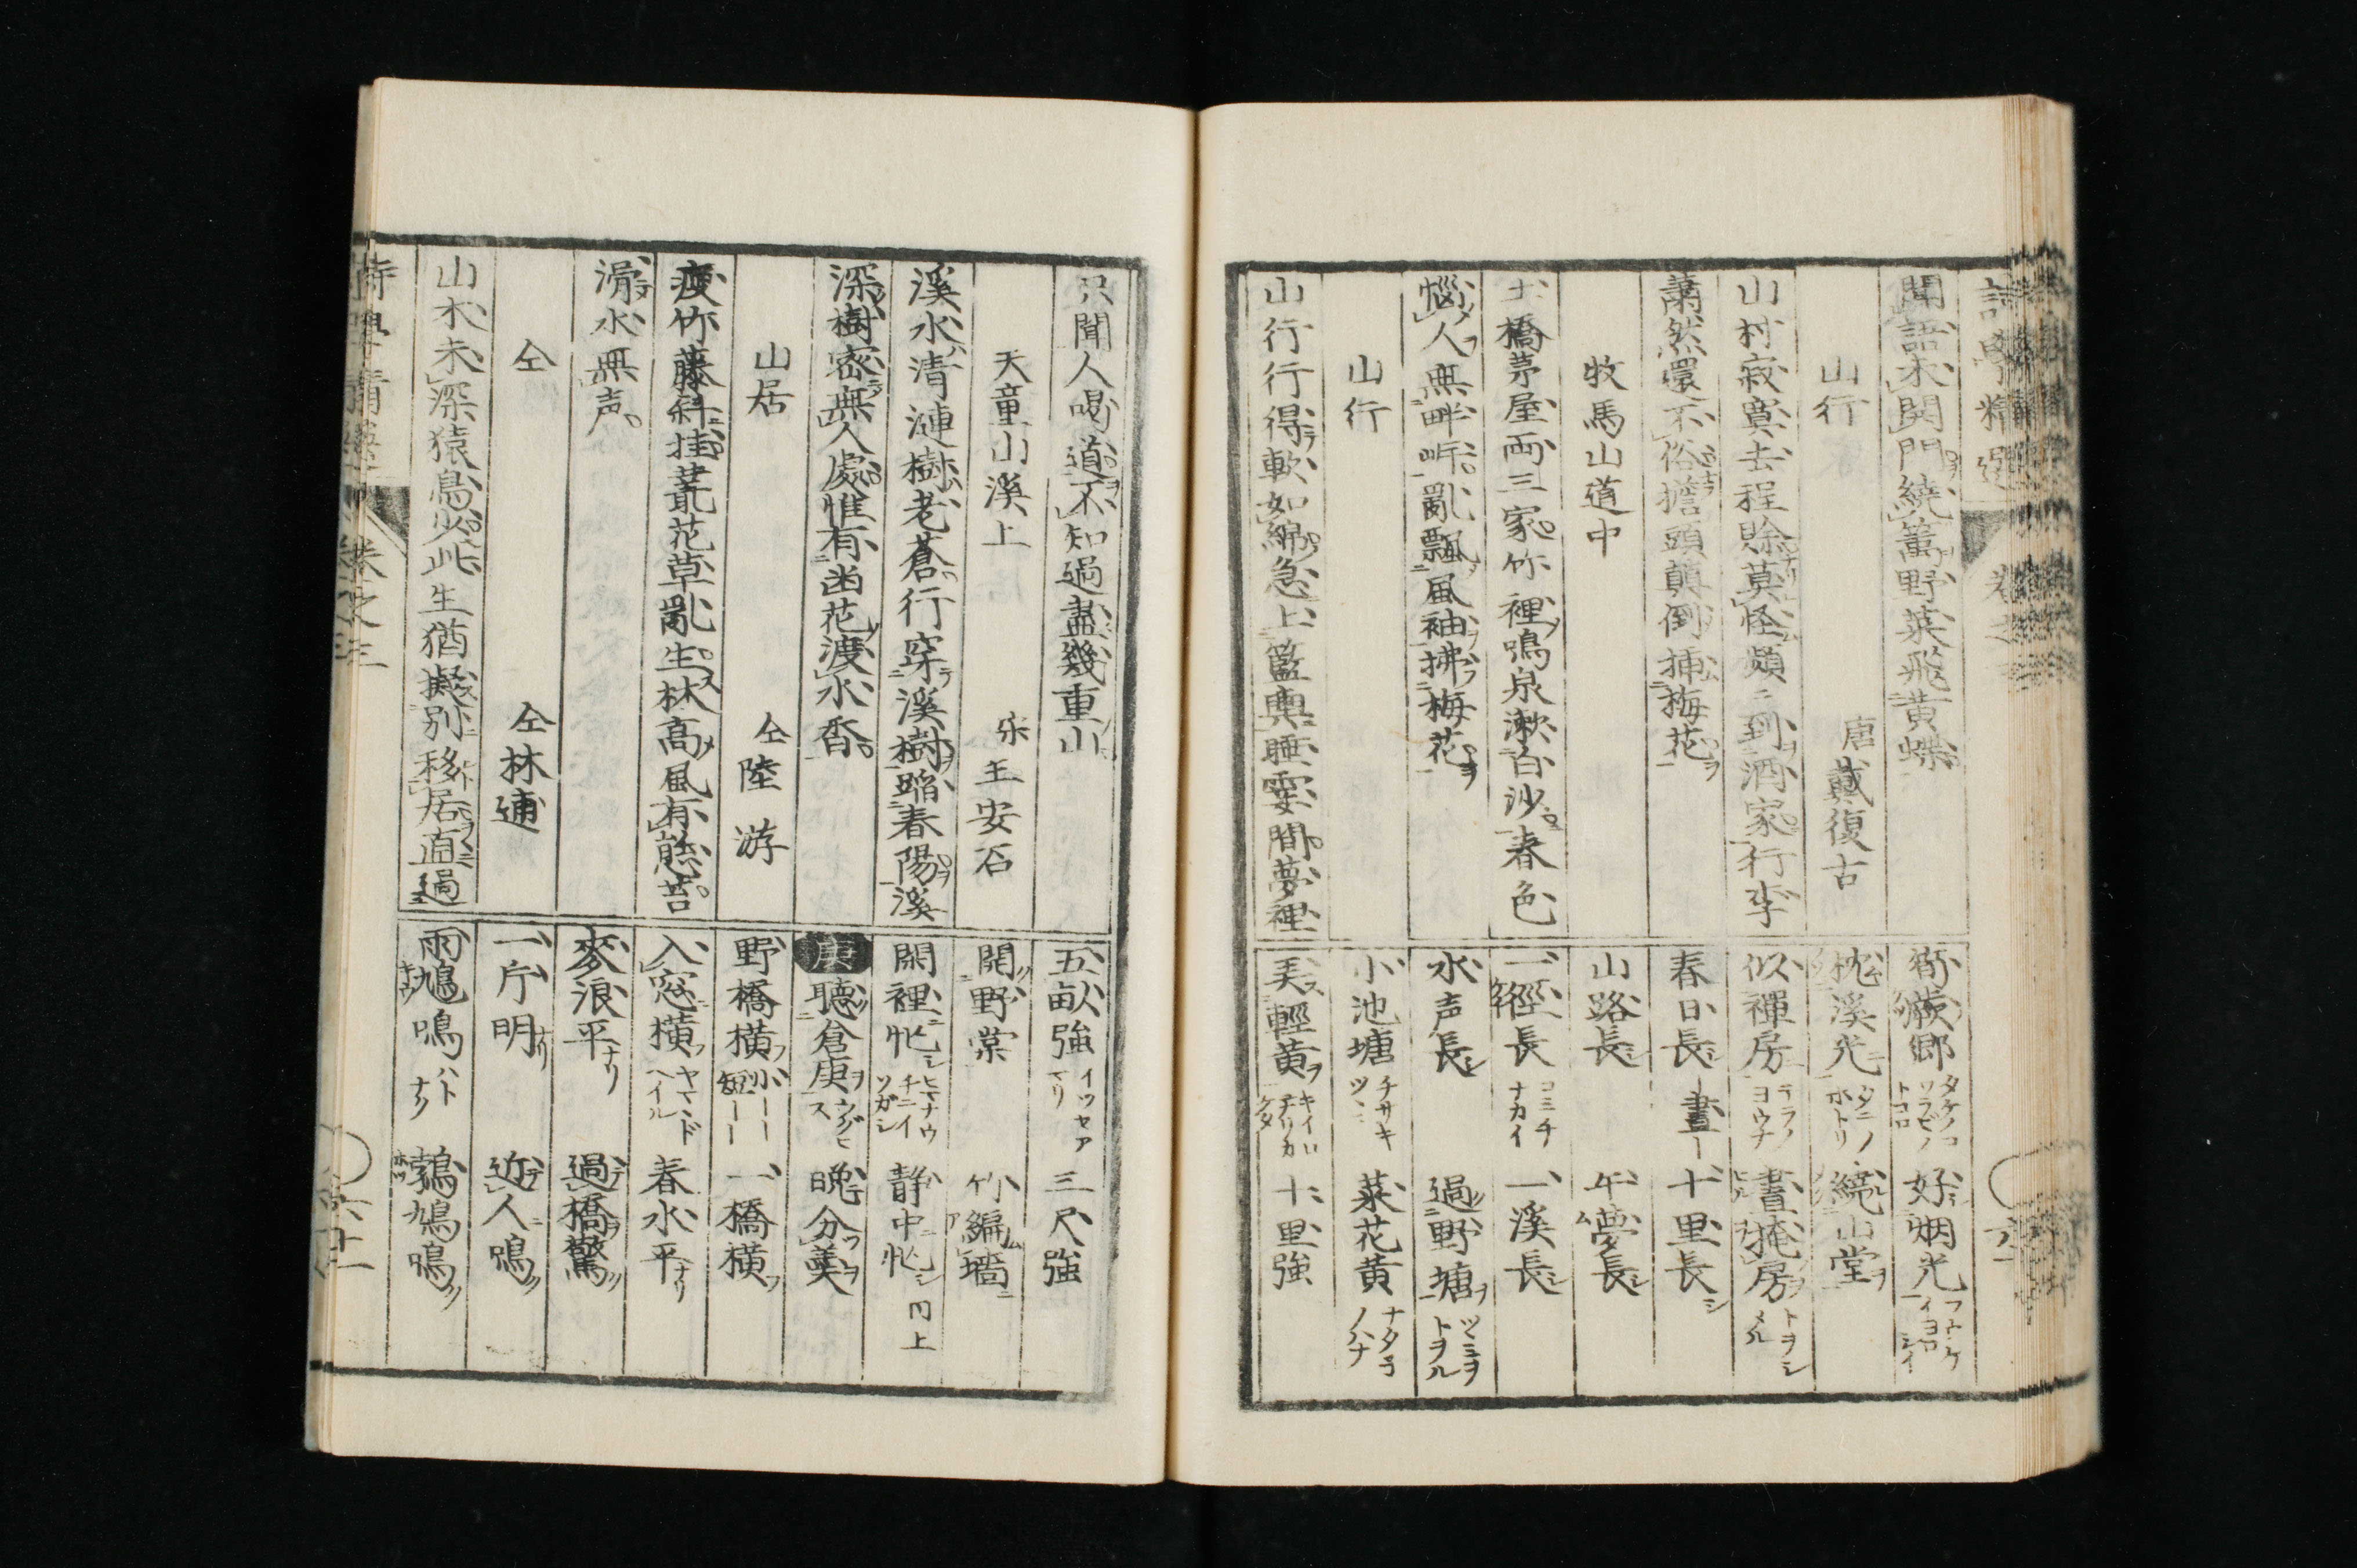 聞語未関門繞籬野菜飛黄蝶
山行 唐 戴復古
山村寂寞去程賖莫怪頻々到酒家行李
蕭然還不俗擔頭顛倒挿梅花
牧馬山道中
土橋茅屋両三家竹裡鳴泉漱白沙春色
惱人無畔岸亂飄風袖拂梅花
山行
山行行得軟如綿急上籃輿睡霎間夢裡
卷之
好烟光
枕溪光 繞山堂
似禪房 晝掩房
春日長 晝 十里長
山路長 午夢長
一徑長 コミチナカイ 一溪長
水声長 過野塘 ツミヲトヲル
小池塘 チサキツヽミ 菜花黄 ナタネノハナ
美輕黄 十里強
只聞人喝道不知過盡幾重山
天童山溪上 宋 王安石
溪水清漣樹老蒼行穿溪樹踏春陽溪
深樹密無人處惟有幽花渡水香
山居 仝 陸游
瘦竹藤斜挂叢花草亂生林高風有態苔
滑水無声
仝 仝 林逋
山水未深猿鳥少此生猶擬別移居直過
五畝強 三尺強
開野棠 竹編墻
閑裡忙 静中忙 同上
庚 聴倉庚 晩分羹
野橋横 一橋横
入窓横 春水平
麥浪平 過橋驚
一片明 近人鳴
雨鳩鳴 鵓鳩鳴
卷之三